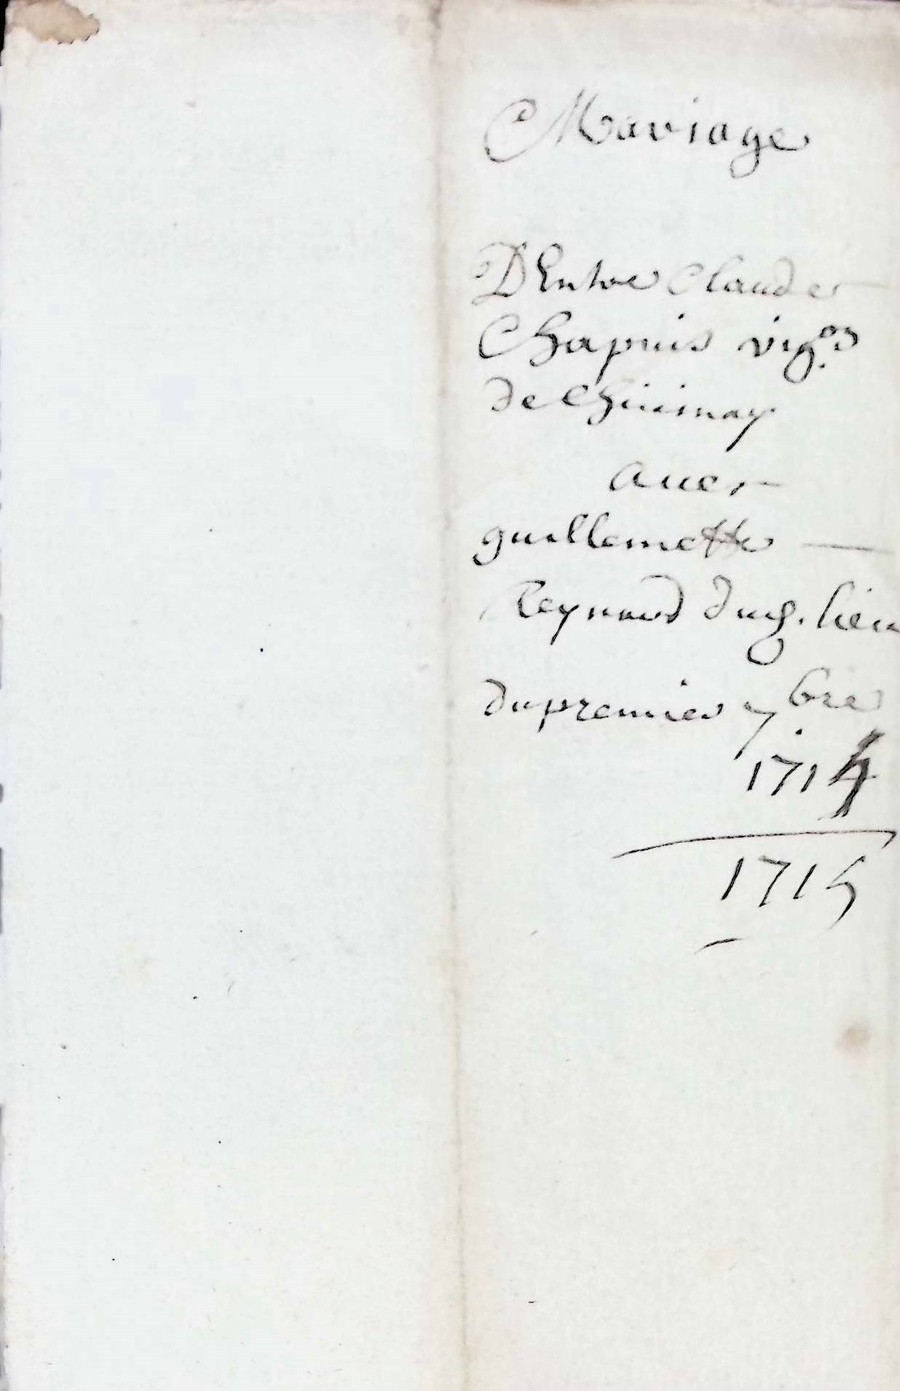 Mariage
D'Entre Claude
Chapuis vig.on
de Chiinay
avec
guillemette
Reynaud dud. lieu
du premier 7bre
1714
1715